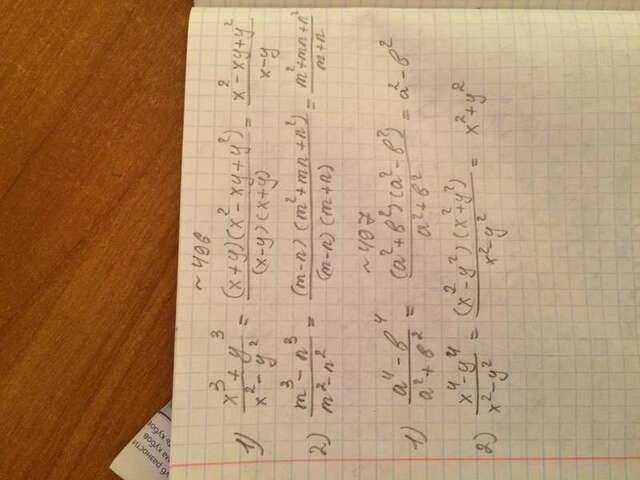 ~ 496
1) x³ + y³ / x² - y² = (x+y)(x² - xy + y²) / (x-y)(x+y) = x² - xy + y² / x - y
2) m³ - n³ / m² - n² = (m-n)(m² + mn + n²) / (m-n)(m+n) = m² + mn + n² / m + n
~ 497
1) a⁴ - b⁴ / a² + b² = (a² + b²)(a² - b²) / a² + b² = a² - b²
2) x⁴ - y⁴ / x² - y² = (x² - y²)(x² + y²) / x² - y² = x² + y²
разности
кубов